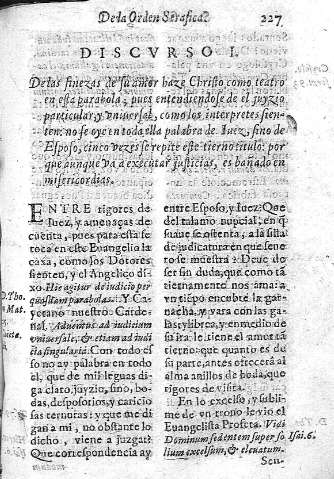 De la Orden Serafica. 227
DISCVRSO I.
De las finezas de su amor haze Christo, como teatro
en esta parabola, pues entendiendose de el juyzio
particular, y vniversal, como los interpretes sien-
ten: no se oye en toda ella palabra de Iuez, sino de
Esposo, cinco vezes se repite este tierno titulo: por
que aunque va a executar justicias, es bañado en
misericordias.
ENTRE rigores de
Iuez, y amenaças de
cuenta, pues para esta se
toca en este Evangelio la
caxa, como los Dotores
sienten, y el Angelico di-
xo. Hic agitur de iudicio per
quasdam parabolas. Y Ca-
yetano nuestro Carde-
nal. Adventus ad iudicium
universale, & etiam ad iudi
cia singularia. Con todo es-
so no ay palabra en todo
el, que de mil leguas di-
ga claro, juyzio, sino, bo-
das, desposorios, y caricio
sas ternuras: y que me di-
gan a mi, no obstante lo
dicho, viene a juzgar?
Que correspondencia ay
D. Tho.
Mat.
entre Esposo, y Iuez: Que
del talamo nupcial, en q̃
suave se ostenta, a la silla
de judicatura en que seve-
ro se muestra? Deue de
ser sin duda, que como tã
tiernamente nos ama: a
vn tiẽpo encubre la gar-
nacha, y vara con las ga-
las, y librea, y en medio de
su ira le tira el amor tã
tierno: que quanto es de
su parte, antes ofrecerà al
alma anillos de boda, que
rigores de visita.
En lo excelso, y subli-
me de vn trono le vio el
Evangelista Profeta. Vidi
Dominum sedentem super so
lium excelsum, & elevatum.
Isai. 6.
Sen-